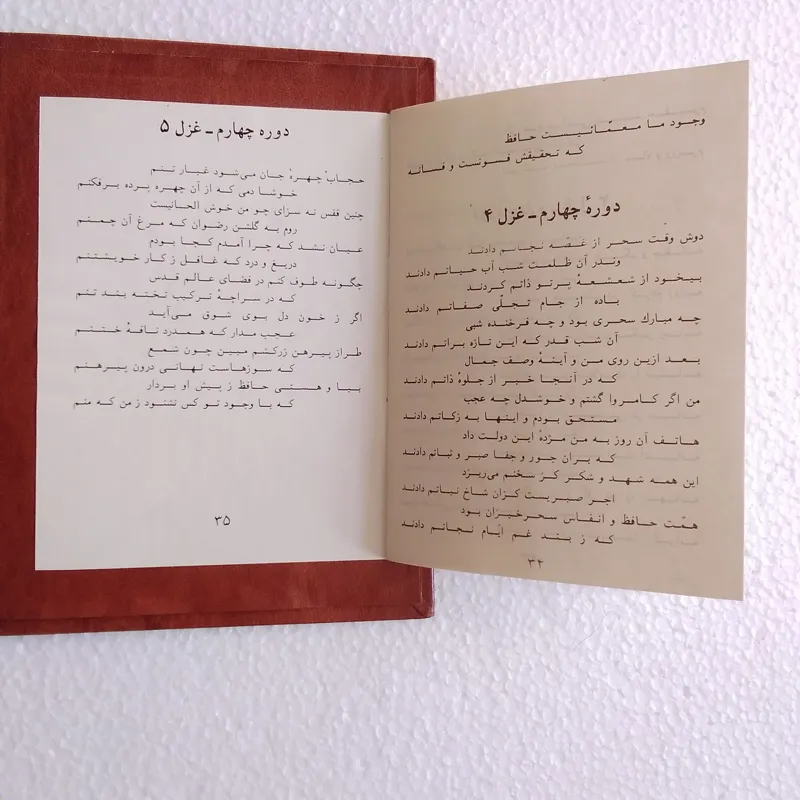 وجود ما معمّائیست حافظ
که تحقیقش فسونست و فسانه
دورهٔ چهارم ـ غزل ۴
دوش وقت سحر از غصّه نجاتم دادند
وندر آن ظلمت شب آب حیاتم دادند
بیخود از شعشعهٔ پرتو ذاتم کردند
باده از جام تجلّی صفاتم دادند
چه مبارك سحری بود و چه فرخنده شبی
آن شب قدر که این تازه براتم دادند
بعد ازین روی من و آینهٔ وصف جمال
که در آنجا خبر از جلوهٔ ذاتم دادند
من اگر کامروا گشتم و خوشدل چه عجب
مستحق بودم و اینها به زکاتم دادند
هاتف آن روز به من مژدهٔ این دولت داد
که بران جور و جفا صبر و ثباتم دادند
این همه شهد و شکر کز سخنم می‌ریزد
اجر صبریست کزان شاخ نباتم دادند
همّت حافظ و انفاس سحرخیزان بود
که ز بند غم ایّام نجاتم دادند
۳۴
دوره چهارم ـ غزل ۵
حجاب چهرهٔ جان می‌شود غبار تنم
خوشا دمی که از آن چهره پرده برفکنم
چنین قفس نه سزای چو من خوش الحانیست
روم به گلشن رضوان که مرغ آن چمنم
عیان نشد که چرا آمدم کجا بودم
دریغ و درد که غافل ز کار خویشتنم
چگونه طوف کنم در فضای عالم قدس
که در سراچهٔ ترکیب تخته بند تنم
اگر ز خون دل بوی شوق می‌آید
عجب مدار که همدرد نافهٔ ختنم
طراز پیرهن زرکشم مبین چون شمع
که سوزهاست نهانی درون پیرهنم
بیا و هستی حافظ ز پیش او بردار
که با وجود تو کس نشنود ز من که منم
۳۵